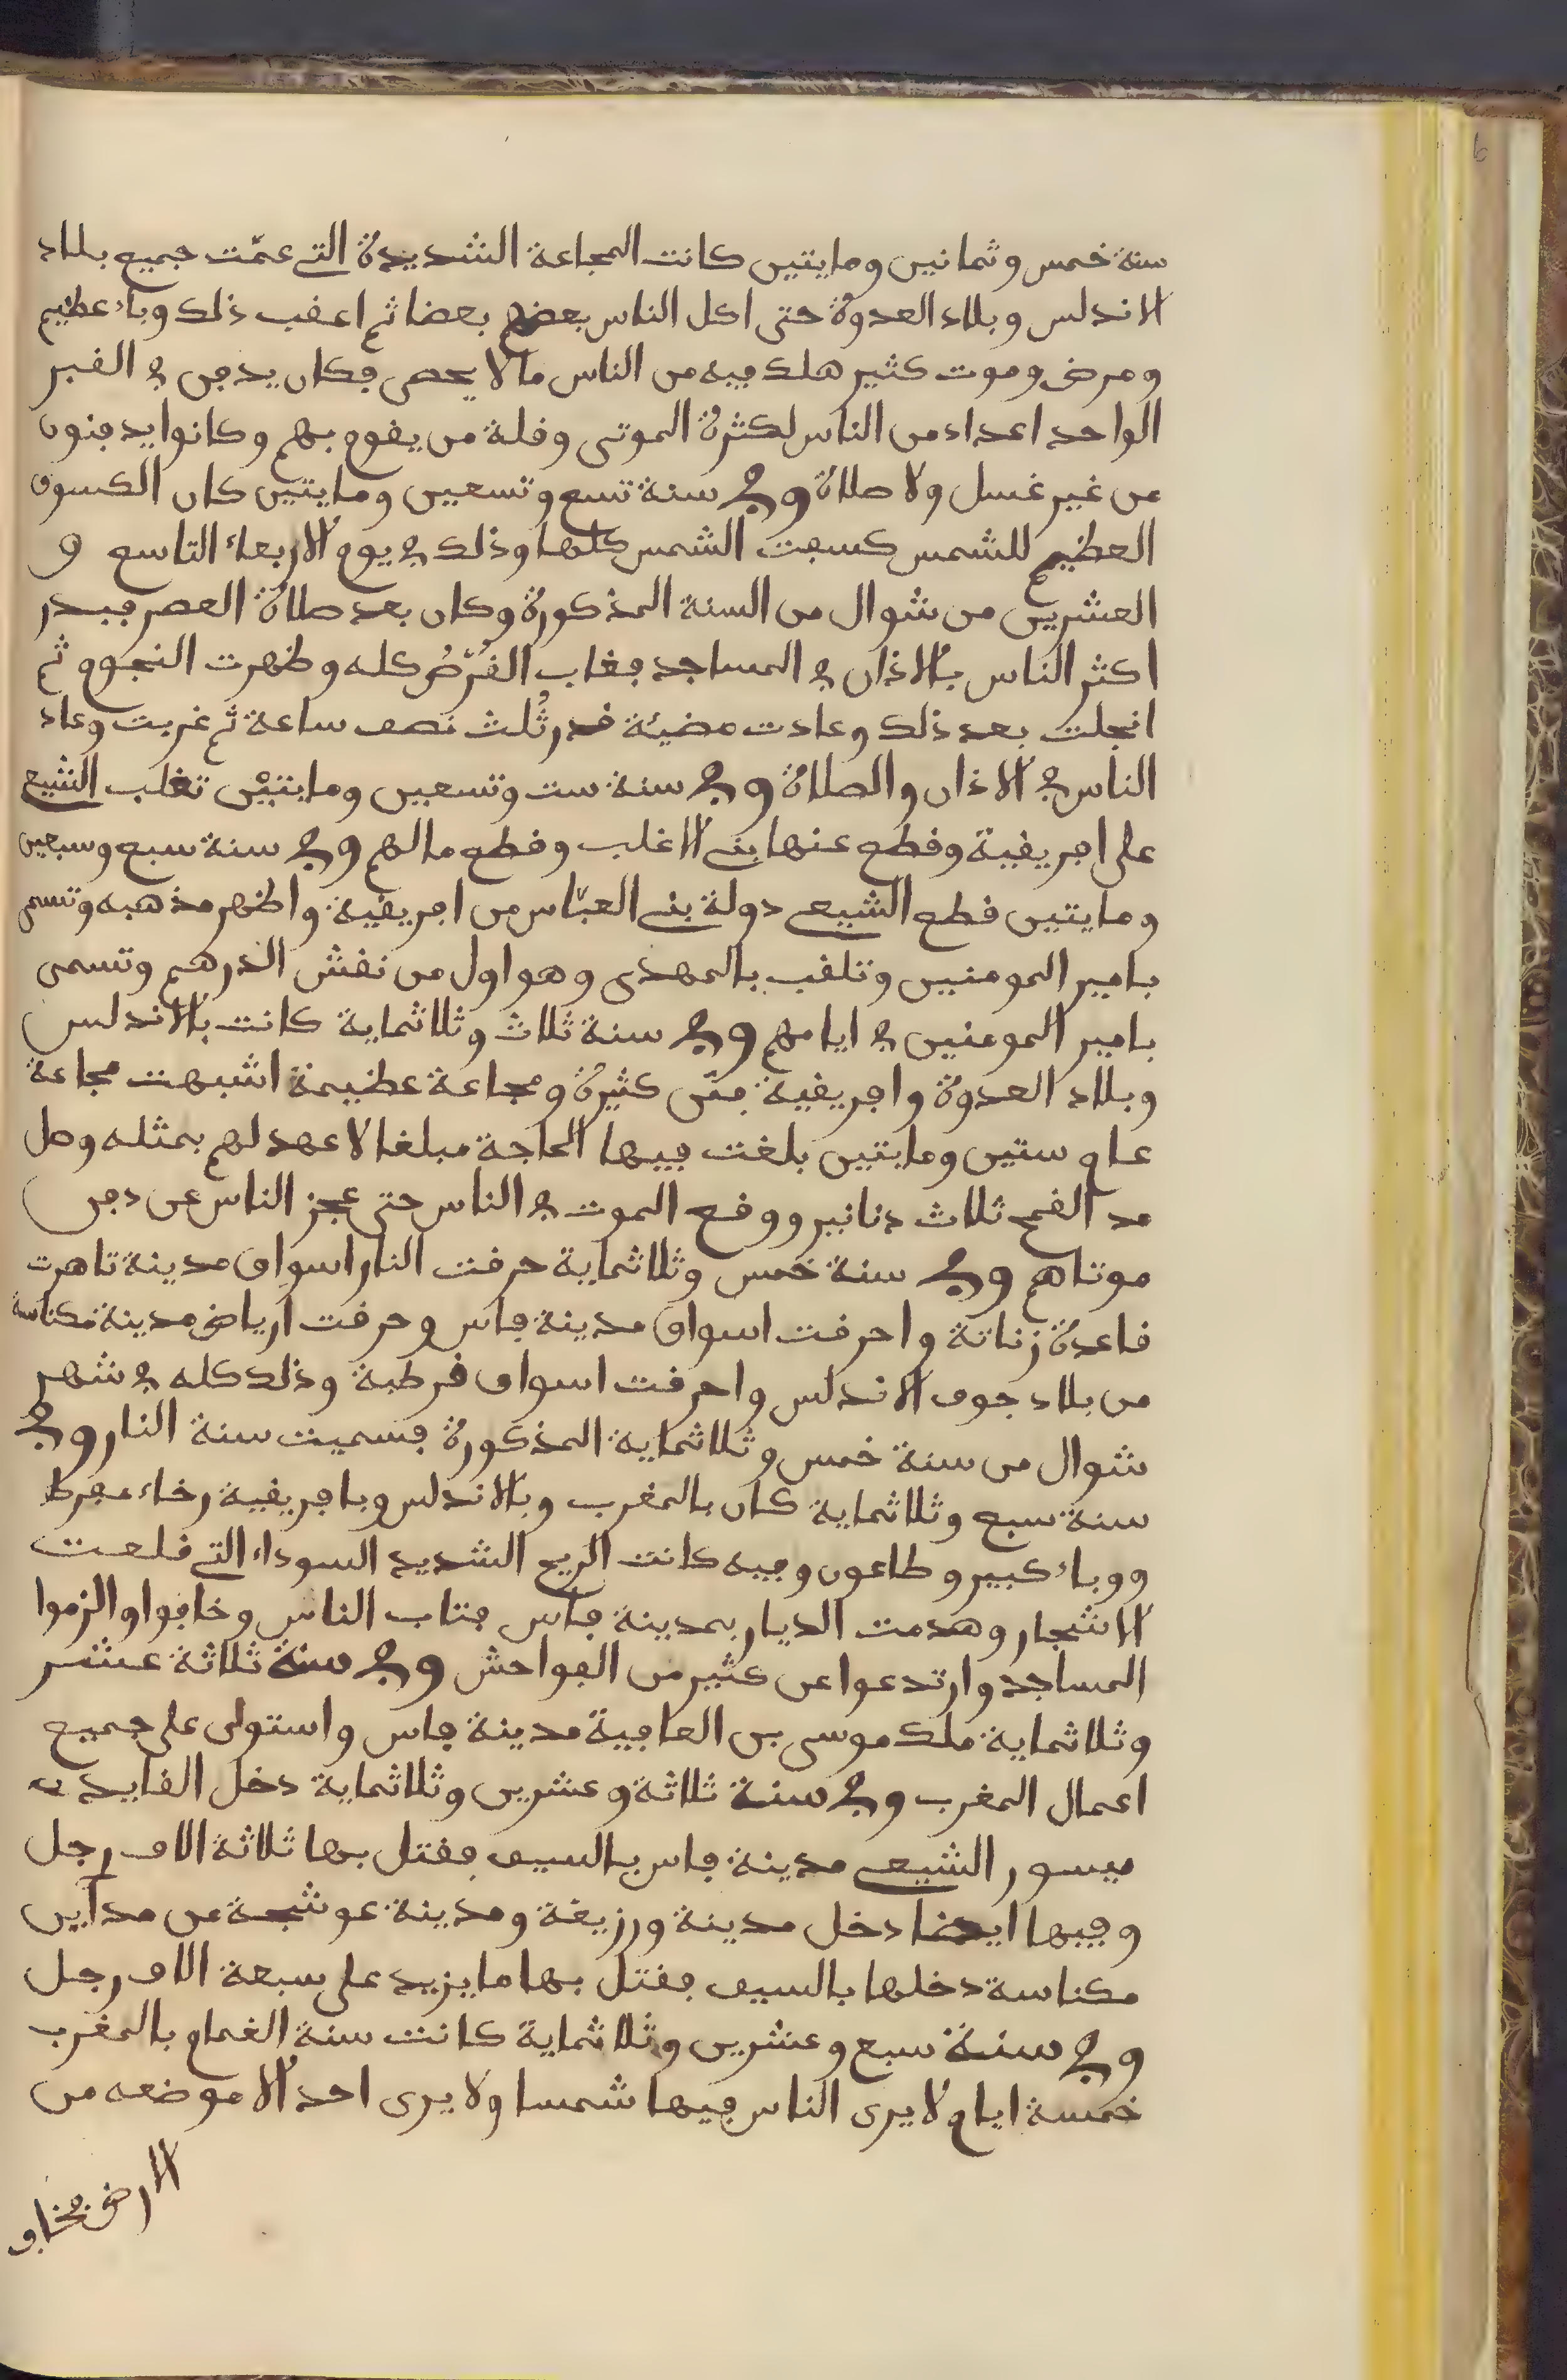 6
سنة خمس وثمانين ومايتين كانت المجاعة الشديدة التي عمّت جميع بلاد
الاندلس وبلاد العدوة حتى اكل الناس بعضهم بعضا ثم اعقب ذلك وباء عظيم
ومرض وموت كثير هلك فيه من الناس ما لا يحصى فكان يدفن في القبر
الواحد اعداد من الناس لكثرة الموتى وقلة من يقوم بهم وكانوا يدفنون
من غير غسل ولا صلاة وفي سنة تسع وتسعين ومايتين كان الكسوف
العظيم للشمس كسفت الشمس كلها وذلك في يوم الاربعاء التاسع و
العشرين من شوال من السنة المذكورة وكان بعد صلاة العصر فبدر
اكثر الناس بالاذان في المساجد فغاب القُرْصُ كله وظهرت النجوم ثم
انجلت بعد ذلك وعادت مضيئة قدر ثُلث نصف ساعة ثم غربت وعاد
الناس في الاذان والصلاة وفي سنة ست وتسعين ومايتيْن تغلب الشيع
على افريقية وقطع عنها بني الاغلب وقطع مالهم وفي سنة سبع وسبعين
ومايتين قطع الشيعي دولة بني العبّاس من افريقية واظهر مذهبه وتسمى
بامير المومنين وتلقب بالمهدي وهو اول من نقش الدرهم وتسمى
بامير المومنين في ايامهم وفي سنة ثلاث وثلاثماية كانت بالاندلس
وبلاد العدوة وافريقية فتن كثيرة ومجاعة عظيمة اشبهت مجاعة
عام ستين ومايتين بلغت فيها الحاجة مبلغا لا عهد لهم بمثله وصل
مد القمح ثلاث دنانير ووقع الموت في الناس حتى عجز الناس عن دفن
موتاهم وفي سنة خمس وثلاثماية حرقت النار اسواق مدينة تاهرت
قاعدة زناتة واحرقت اسواق مدينة فاس وحرقت ارياض مدينة مكناسة
من بلاد جوف الاندلس واحرقت اسواق قرطبة وذلك كله في شهر
شوال من سنة خمس وثلاثماية المذكورة فسميت سنة النار وفي
سنة سبع وثلاثماية كان بالمغرب وبالاندلس وبافريقية رخاء مفرط
ووباء كبير وطاعون وفيه كانت الريح الشديد السوداء التي قلعت
الاشجار وهدمت الديار بمدينة فاس فتاب الناس وخافوا والزموا
المساجد وارتدعوا عن كثير من الفواحش وفي سنة ثلاثة عشر
وثلاثماية ملك موسى بن العافية مدينة فاس واستولى على جميع
اعمال المغرب وفي سنة ثلاثة وعشرين وثلاثماية دخل القايد
ميسور الشيعي مدينة فاس بالسيف فقتل بها ثلاثة الاف رجل
وفيها ايضا دخل مدينة ورزيغة ومدينة عوشجة من مداين
مكناسة دخلها بالسيف فقتل بها ما يزيد على سبعة الاف رجل
وفي سنة سبع وعشرين وثلاثماية كانت سنة الغمام بالمغرب
خمسة ايام لا يرى الناس فيها شمسا ولا يرى احد الا موضعه من
الارض فخاف